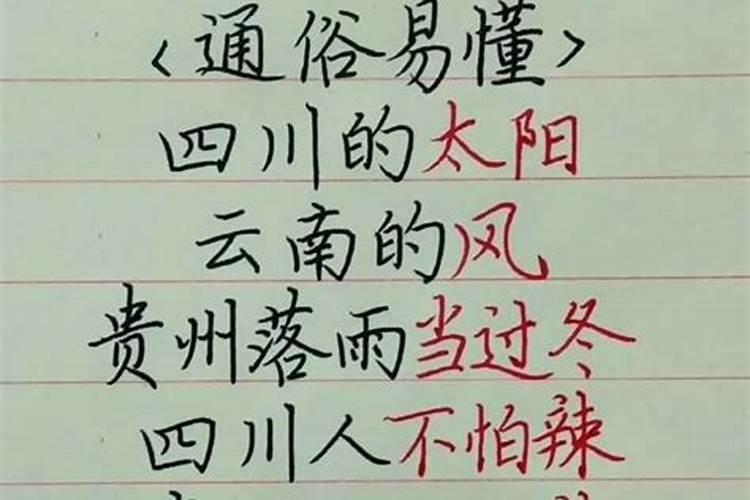 <通俗易懂>
四川的太阳
云南的风
贵州落雨当过冬
四川人不怕辣